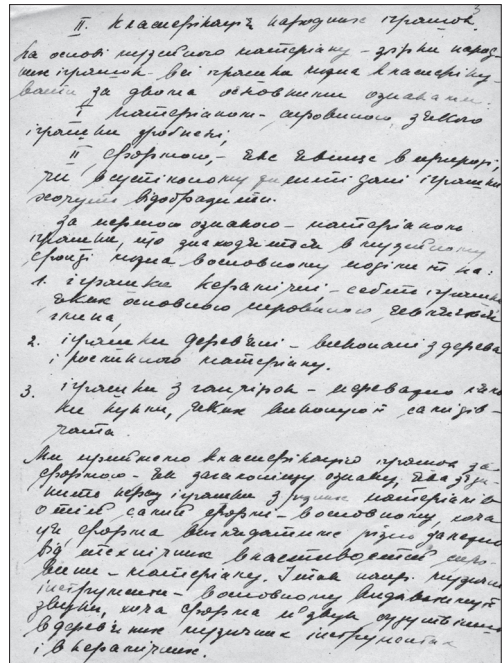 3
II. Класифікація народних іграшок.
На основі музейного матеріалу – збірки народ-
них іграшок – всі іграшки можна класифіку-
вати за двома основними ознаками:
I матеріалом – сировиною, з якого
іграшки зроблені,
II формою, – яке явище в природі,
чи в суспільному житті дані іграшки
хочуть відобразити.
За першою ознакою – матеріалом
іграшки, що знаходяться в музейному
фонді можна в основному поділити на:
1. іграшки керамічні – себто іграшки,
яких основною сировиною, являється
глина,
2. іграшки дерев'яні – виконані з дерева
і рослинного матеріалу.
3. іграшки з ганчірок – переважно ляль-
ки кукли, яких виконують самі дів-
чата.
Ми приймемо класифікацію іграшок за
формою – як загальнішу ознаку, яка
нить перед іграшки з різних матеріалів
о тій самій формі – в основному, хоча
ця форма виглядатиме різно залежно
від технічних властивостей сиро-
вини – матеріалу. І так напр. музичні
інструменти – в основному видаватимуть
звуки, хоча форма й звук
в дерев'яних музичних інструментах
і в керамічних.